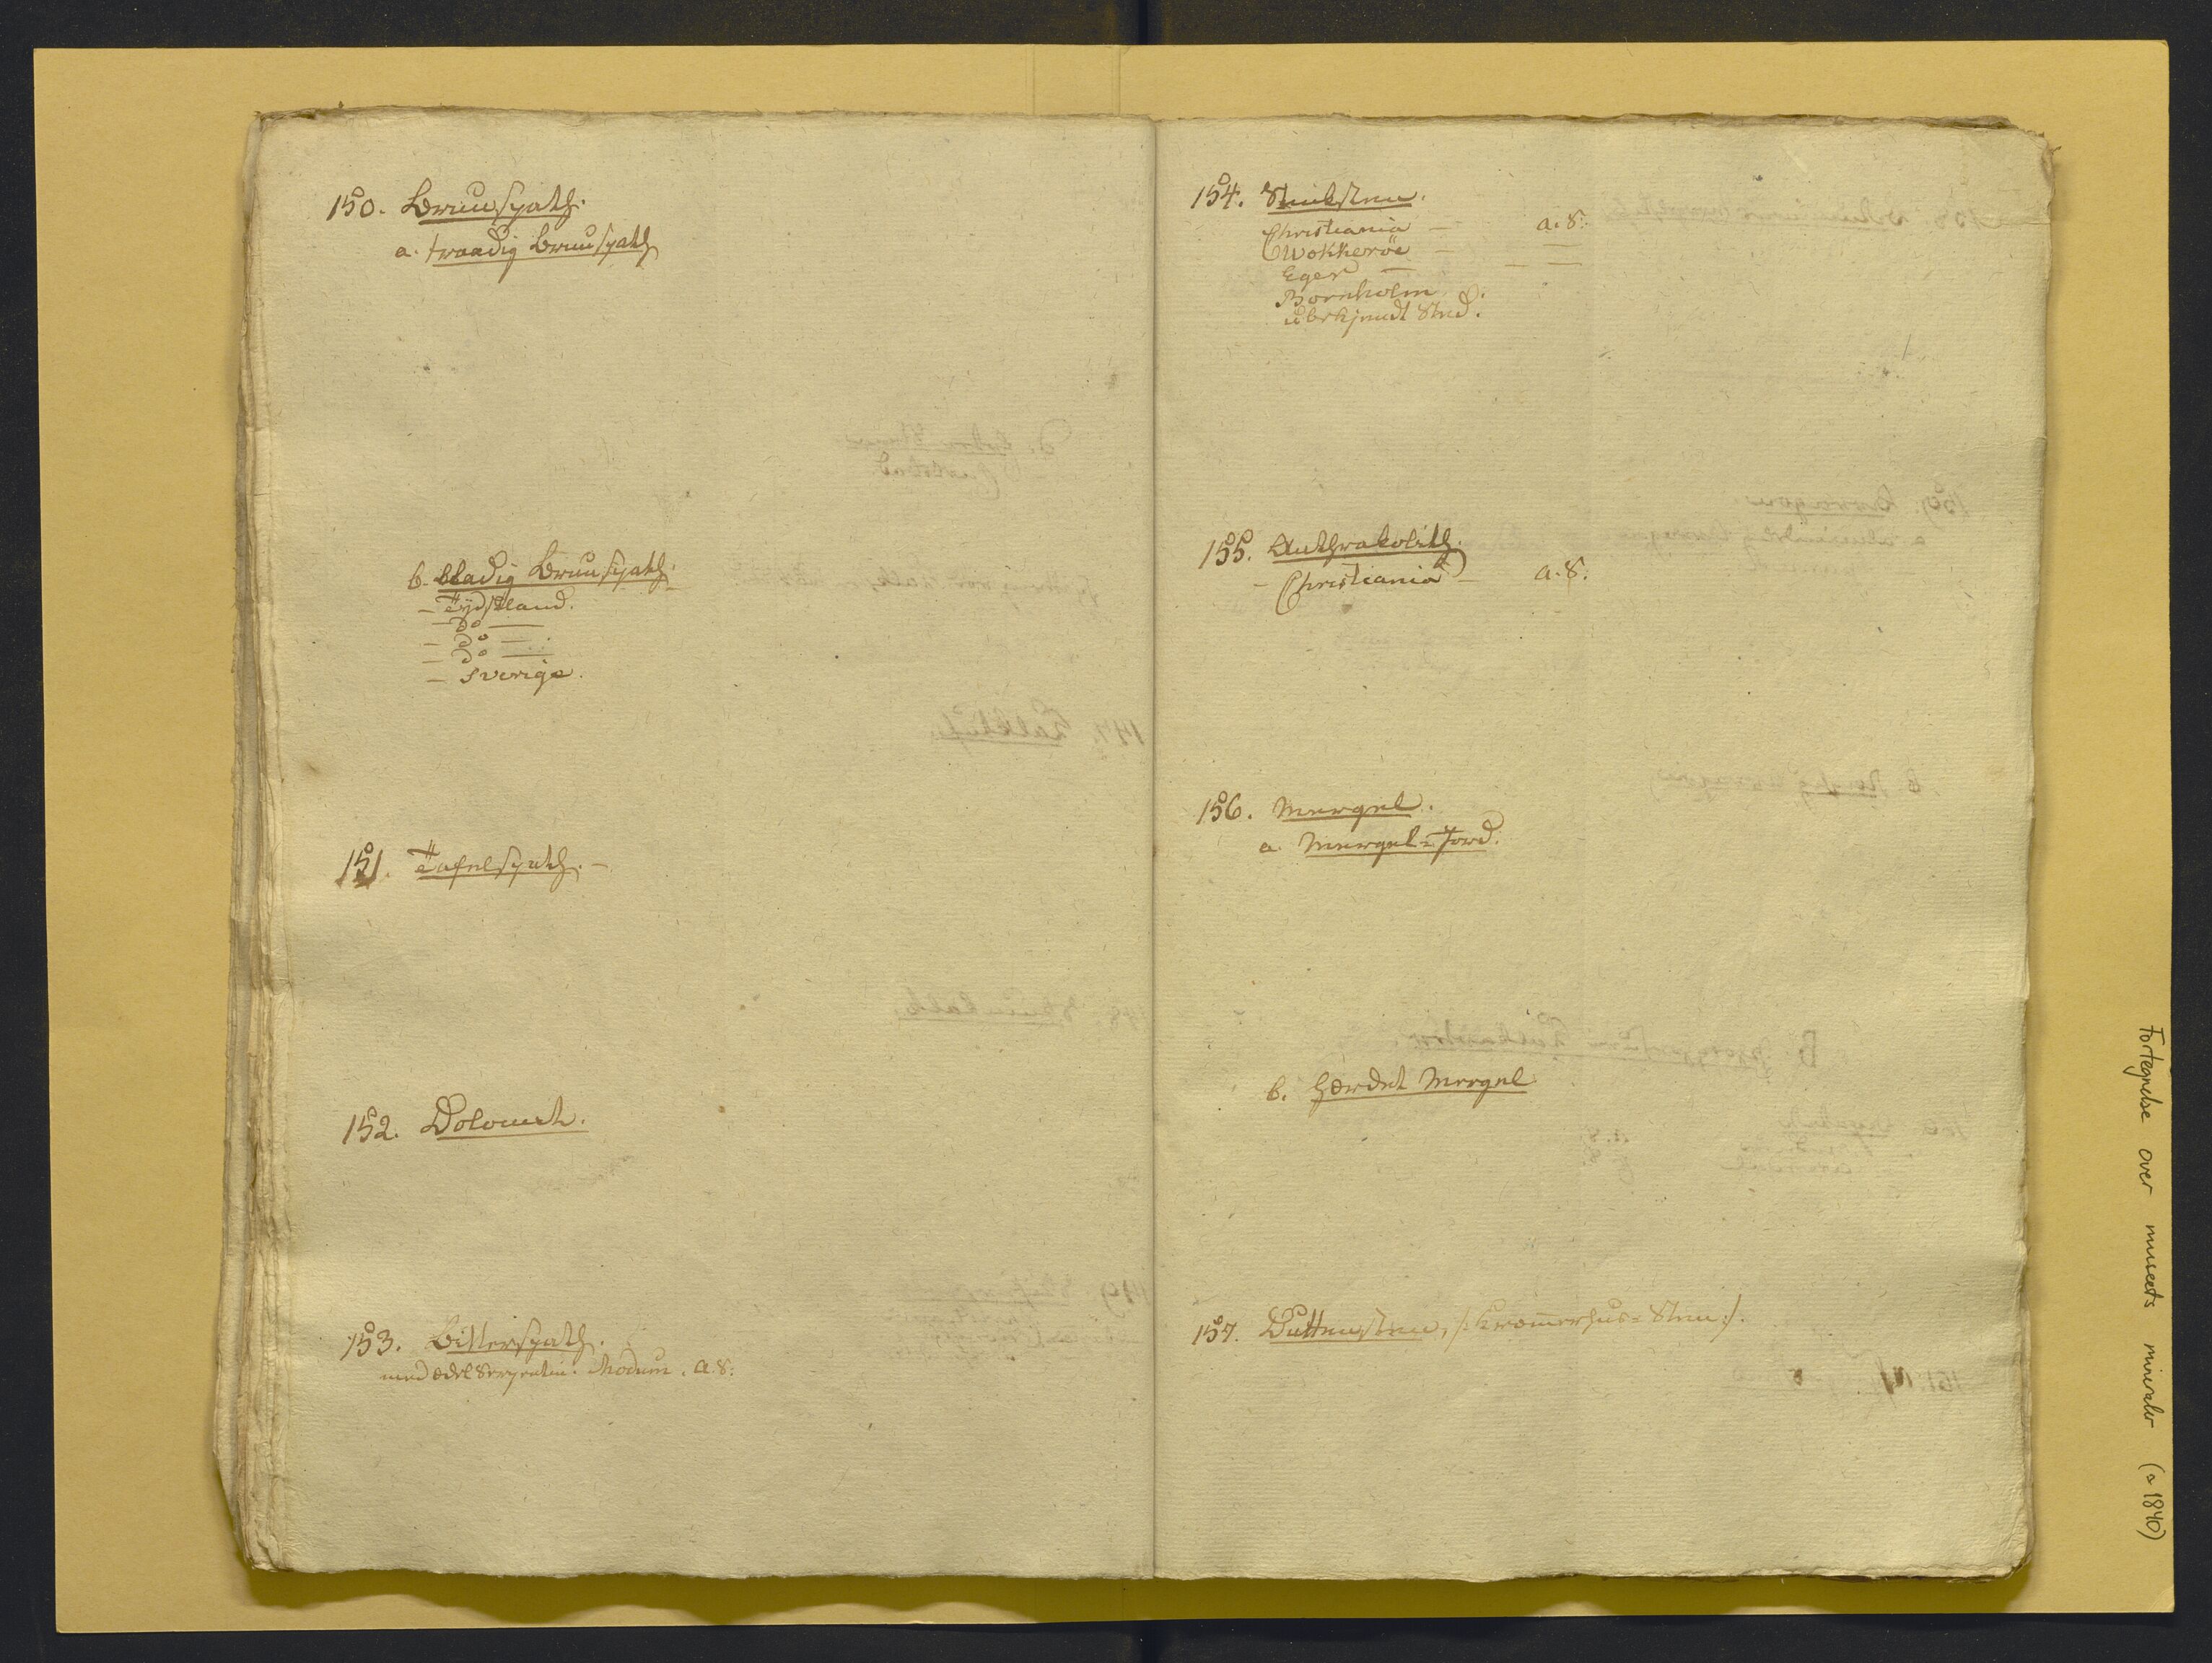 150. Bruunspath.
a. traadig Bruunspath
b. bladig Bruunspath.
– Tydskland.
– do —
– do —
– do —
– Sverige.
151. Tafelspath. –
152. Dolomit.
153. Bitterspath.
med ædel Serpentin. Modum. a. S.
154. Stinksteen.
Christiania – a. S.
Wokkeröe – —
Eger — – —
Bornholm
ubekjendt Sted.
155. Anthrakolith.
– Christiania – a. S.
156. Mergel.
a. Mergel-Jord.
b. hærdet Mergel
157. Duttensteen, /: Kræmmerhus-Steen :/.
Fortegnelse over museets mineraler (ca 1840)